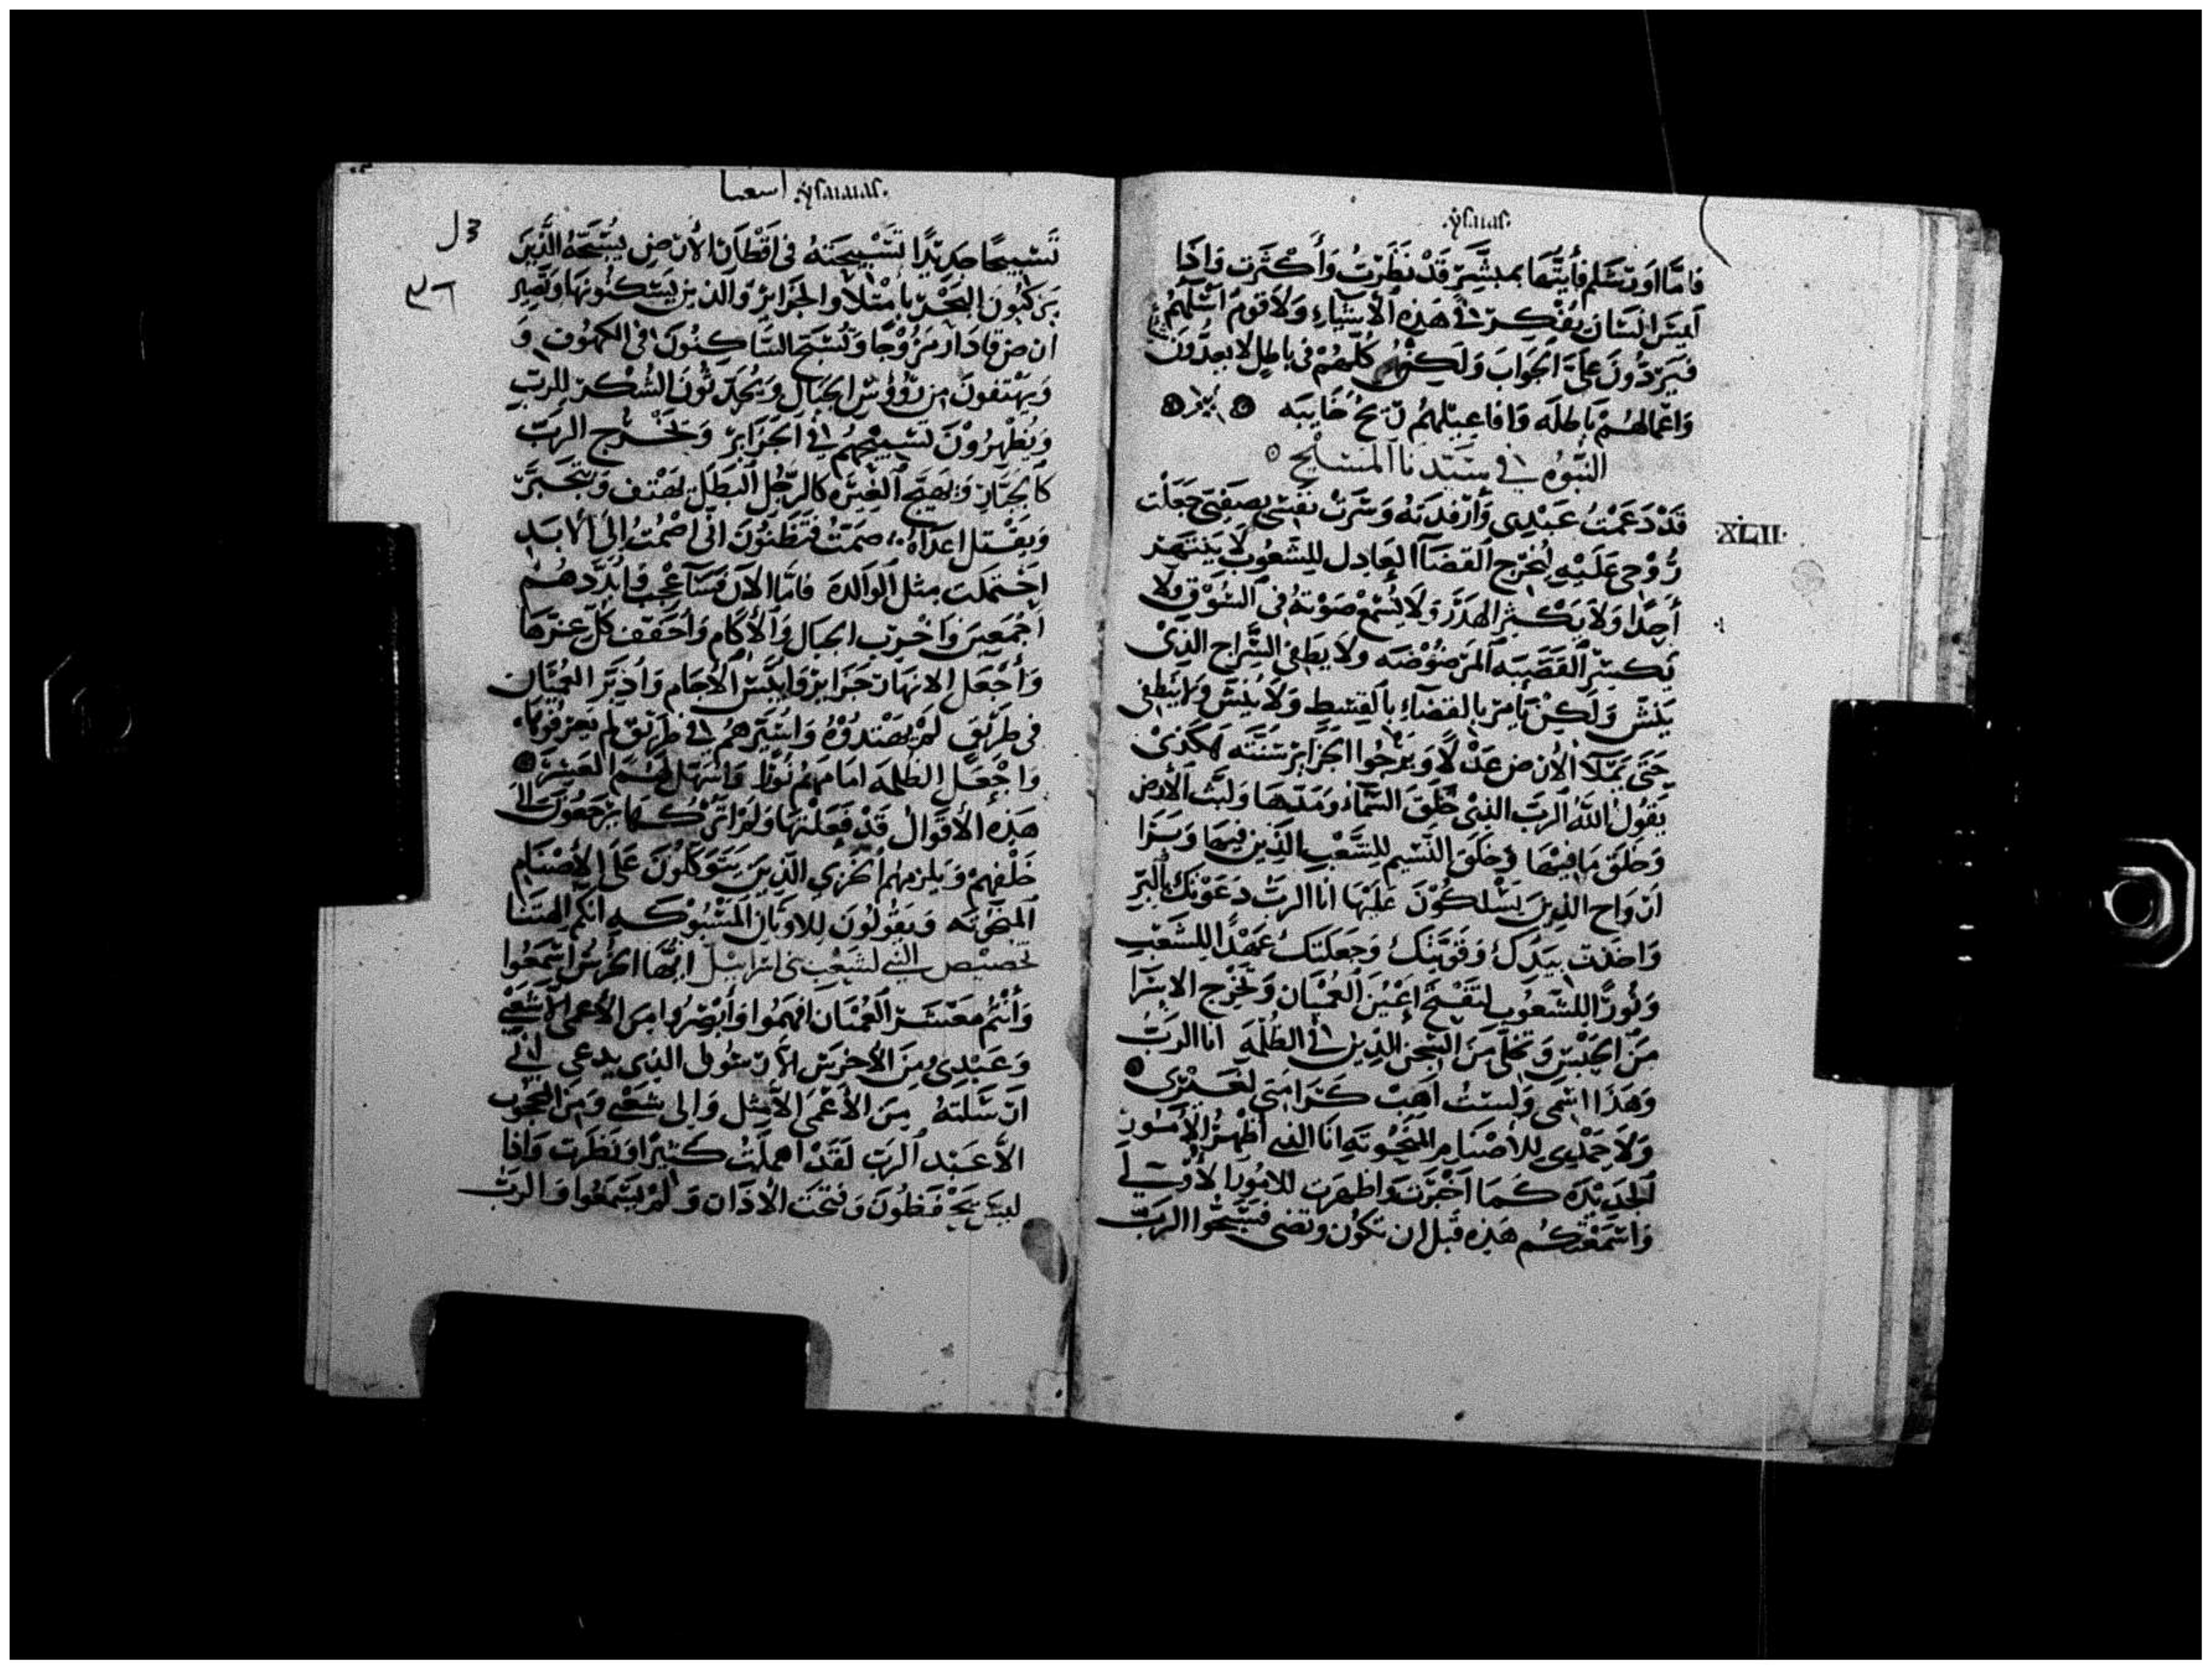 ysaias
فامّا اورشلم فأيتها بمبشر قد نظرت وأكثرت واذا
ليس انسان يفكر في هذه الاشياء ولا قوم اسلهم
فيردّون علىّ الجواب ولكنهم كلهم في باطل لا يعدّون
واعمالهم باطله وافاعيلهم ريح خايبه
النبوه في سيدنا المسيح
قد دعمت عبدى وأرفدته وسرت نفسى بصفيى جعلت
روحى عليه ليخرج القضاا العادل للشعوب لا ينتهر
أحدا ولا يكثر الهدر ولا يسمع صوته في السوق ولا
يكسر القصبه المرضوضه ولا يطفى السراج الذى
ينش ولكن يأمر بالقضاء بالقسط ولا ينش ولا ينطفى
حتى يملا الارض عدلا ويرجوا الجزاير سنته هكذى
يقول الله الرب الذى خلق السماء ومدها وثبت الأرض
وخلق ما فيها وخلق النسيم للشعب الذين فيها وبرا
ارواح الذين يسلكون عليها انا الرب دعوتك بالبر
واخذت بيدك وقويتك وجعلتك عهدا للشعب
ونورا للشعوب لتفتح اعين العميان وتخرج الاسرا
من الحبس وتخلى من السجن الذين في الظلمه انا الربّ
وهذا اسمى ولست اهب كرامتى لغيرى
ولا حمدى للاصنام المنحوته انا الذي أظهر الأمور
الجديده كما اخبرت واظهرت للامور الاولى
واسمعتكم هذه قبل ان تكون وتضى فسبحوا الرب
XLII
اسعيا ysaias
تسبيحا جديدا تسبيحته في اقطار الأرض يسبحه الذين
يركبون البحر بامتلاو الجزاير والذين يسكنونها وتصير
ارض قادار مروجا وتسبح الساكنون في الكهوف و
ويهتفون من رووس الجبال ويحدثون الشكر للرب
ويظهرون تسبيحهم في الجزاير ويخرج الرب
كالجبار ويهيج الغيره كالرجل البطل يهتف ويتجبر
ويقتل اعداه صمت فتظنون انى اصمت الى الابد
احتملت مثل الوالدة فامّا الان فسأعجب فابددهم
اجمعين واخرب الجبال والأكام وأجفف كل عشبها
وأجعل الانهار جزاير وايبس الأجام وأدير العميان
فى طريق لم يهتدوه واسيرهم في طريق لم يعرفوها
واجعل الظلمه امامهم نورا واسهل لهم العسر
هذه الأقوال قد فعلتها ولم اتركها يرجعون الى
خلفهم ويلزمهم الخزي الذين يتوكلون على الاصنام
المنحوته ويقولون للاوثان المسبوكه انكم الهتنا
تخصيص النبي لشعب بنى اسراييل ايها الخرس اسمعوا
وأنتم معشر العميان افهموا وأبصروا من الأعمى الا شعبى
وعبدى ومن الأخرس الا رسولى الذى يدعى الي
ارسلته من الأعمى الا مثل والى شعبي ومن المحجوب
الا عبد الرب لقد اهملت كثيرا ونظرت واذا
ليس يحفظون وفتحت الأذان ولم يسمعوا والرب